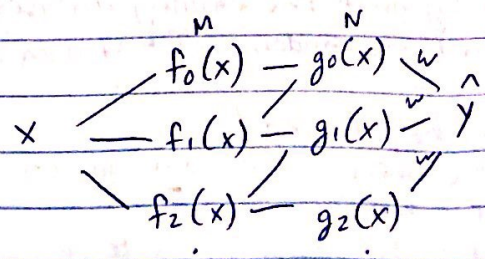 M N
f₀(x) — g₀(x) w
x — f₁(x) — g₁(x) — w ŷ
f₂(x) — g₂(x) w